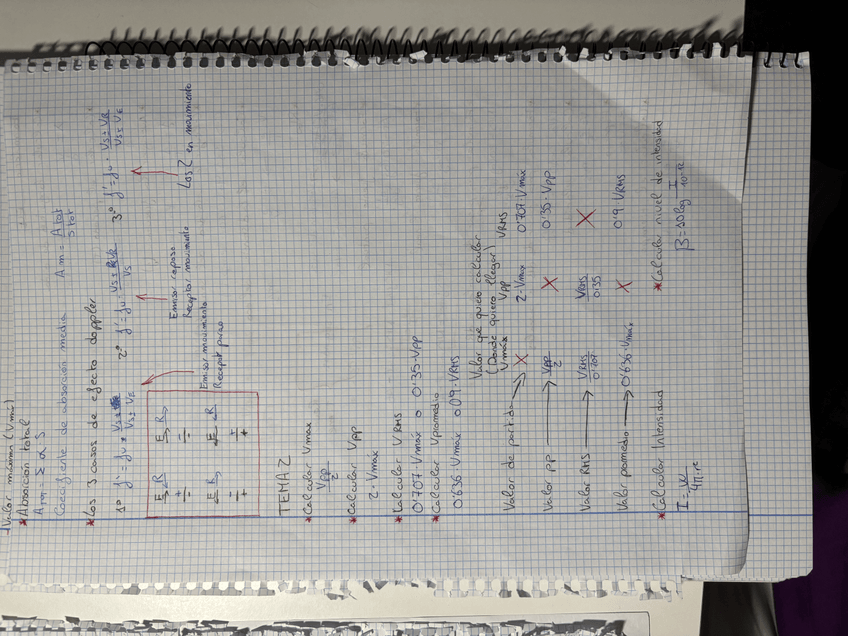 Valor máximo (Vmáx)
* Absorción total
A m = Σ α S
Coeficiente de absorción media Am = A tot / S tot
* Los 3 casos de efecto doppler
1º f' = fv · Vs / Vs ± VE 2º f' = fv · Vs ± VR / Vs 3º f' = fv · Vs ± VR / Vs ± VE
Emisor movimiento
Receptor parao
Emisor reposo
Receptor movimiento
Los 2 en movimiento
E R E R
+ -
- -
E R E R
- +
+ +
TEMA 2
* Calcular Vmax
Vpp / 2
* Calcular Vpp
2·Vmax
* Calcular VRMS
0'707·Vmax o 0'35·Vpp
* Calcular Vpromedio
0'636·Vmax o 0'9·VRMS
Valor que quiero calcular
(Donde quiero llegar)
Valor de partida Vmáx Vpp VRMS
X 2·Vmax 0'707·Vmax
Valor PP → Vpp / 2 X 0'35·Vpp
Valor RMS → VRMS / 0'707 VRMS / 0'35 X
Valor pomedio → 0'636·Vmáx X 0'9·VRMS
* Calcular Intensidad * Calcular nivel de intensidad
I = W / 4π·r² β = 10 log I / 10⁻¹²